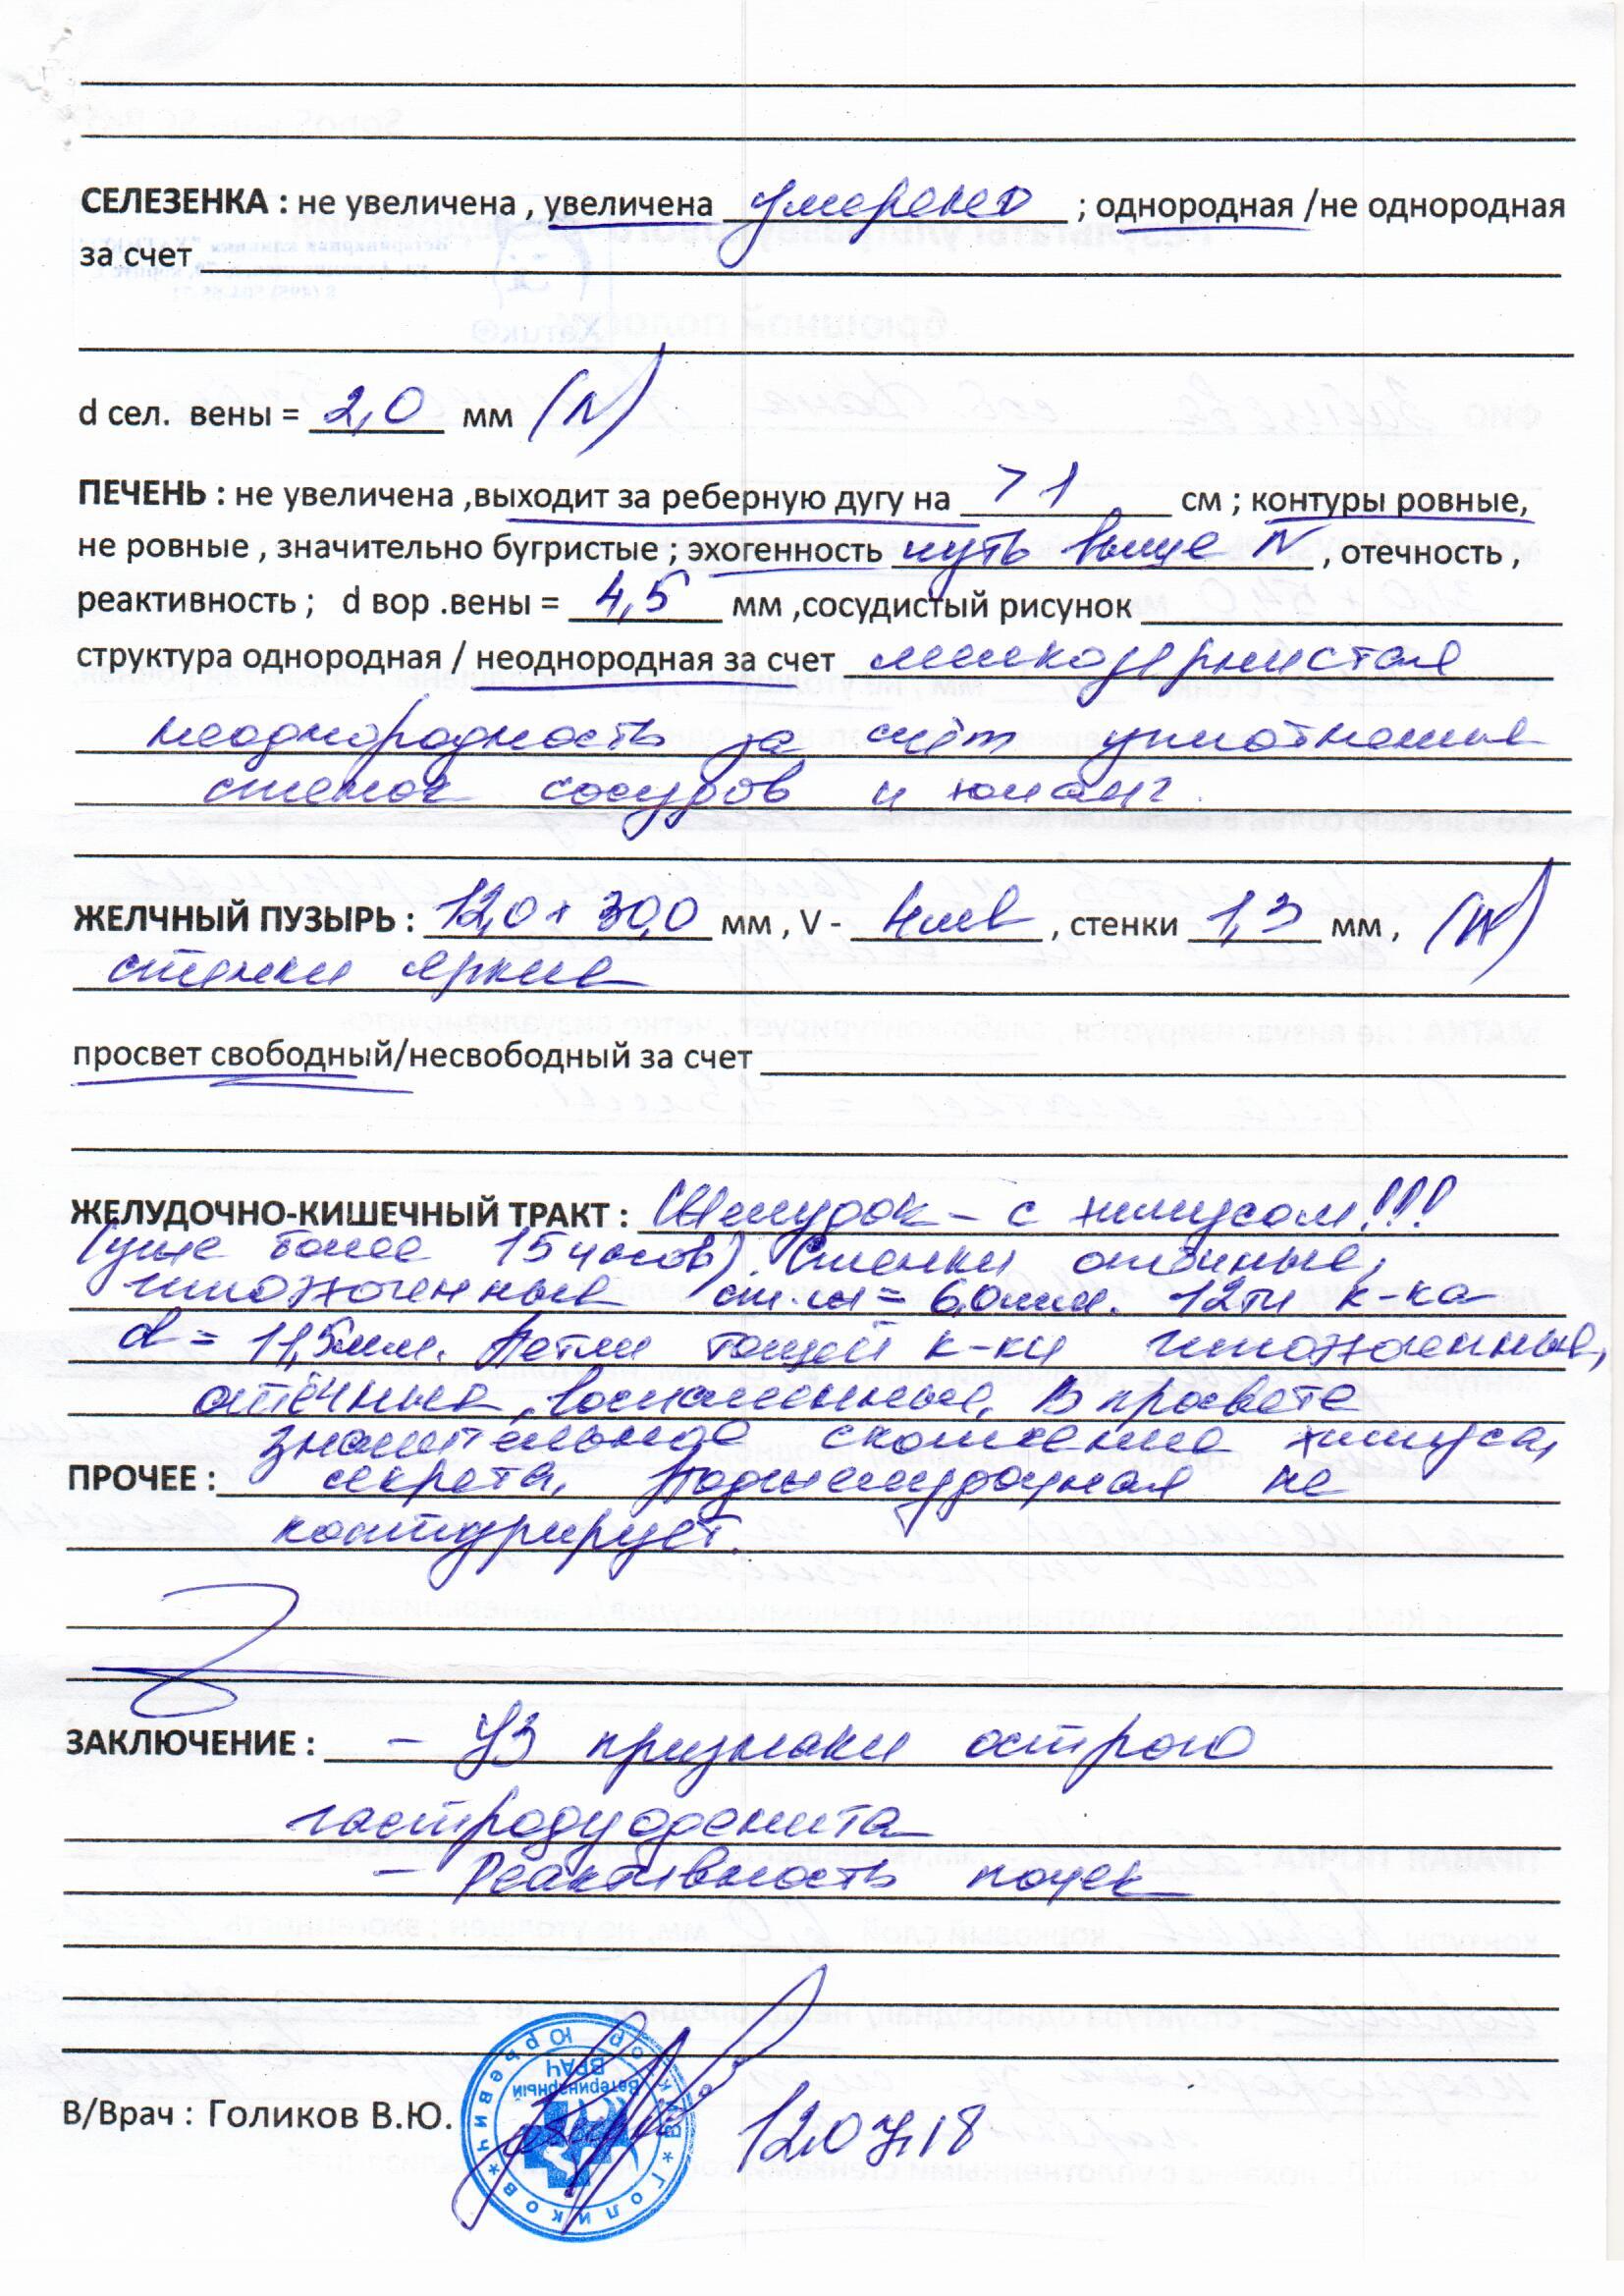 СЕЛЕЗЕНКА : не увеличена , увеличена умерено ; однородная /не однородная
за счет
d сел. вены = 2,0 мм (N)
ПЕЧЕНЬ : не увеличена ,выходит за реберную дугу на > 1 см ; контуры ровные,
не ровные , значительно бугристые ; эхогенность чуть выше N , отечность ,
реактивность ; d вор .вены = 4,5 мм ,сосудистый рисунок
структура однородная / неоднородная за счет мелкозернистая
неоднородность за счёт уплотнения
стенок сосудов и
ЖЕЛЧНЫЙ ПУЗЫРЬ : 12,0 х 30,0 мм , V - 4мл , стенки 1,3 мм , (N)
стенки яркие
просвет свободный/несвободный за счет
ЖЕЛУДОЧНО-КИШЕЧНЫЙ ТРАКТ : Желудок - с химусом!!!
(уже более 15 часов). Стенки отёчные,
гипоэхогенные = 6,0мм. 12ти к-ка
d = 11,5мм. Петли тощей к-ки гипоэхогенные,
отёчные, воспаленные. В просвете
значительное скопление химуса,
ПРОЧЕЕ : секрета. Поджелудочная не
контурирует.
ЗАКЛЮЧЕНИЕ : - УЗ признаки острого
гастродуоденита
- Реактивность почек
В/Врач : Голиков В.Ю.
Ветеринарный
ВРАЧ
12.07.18